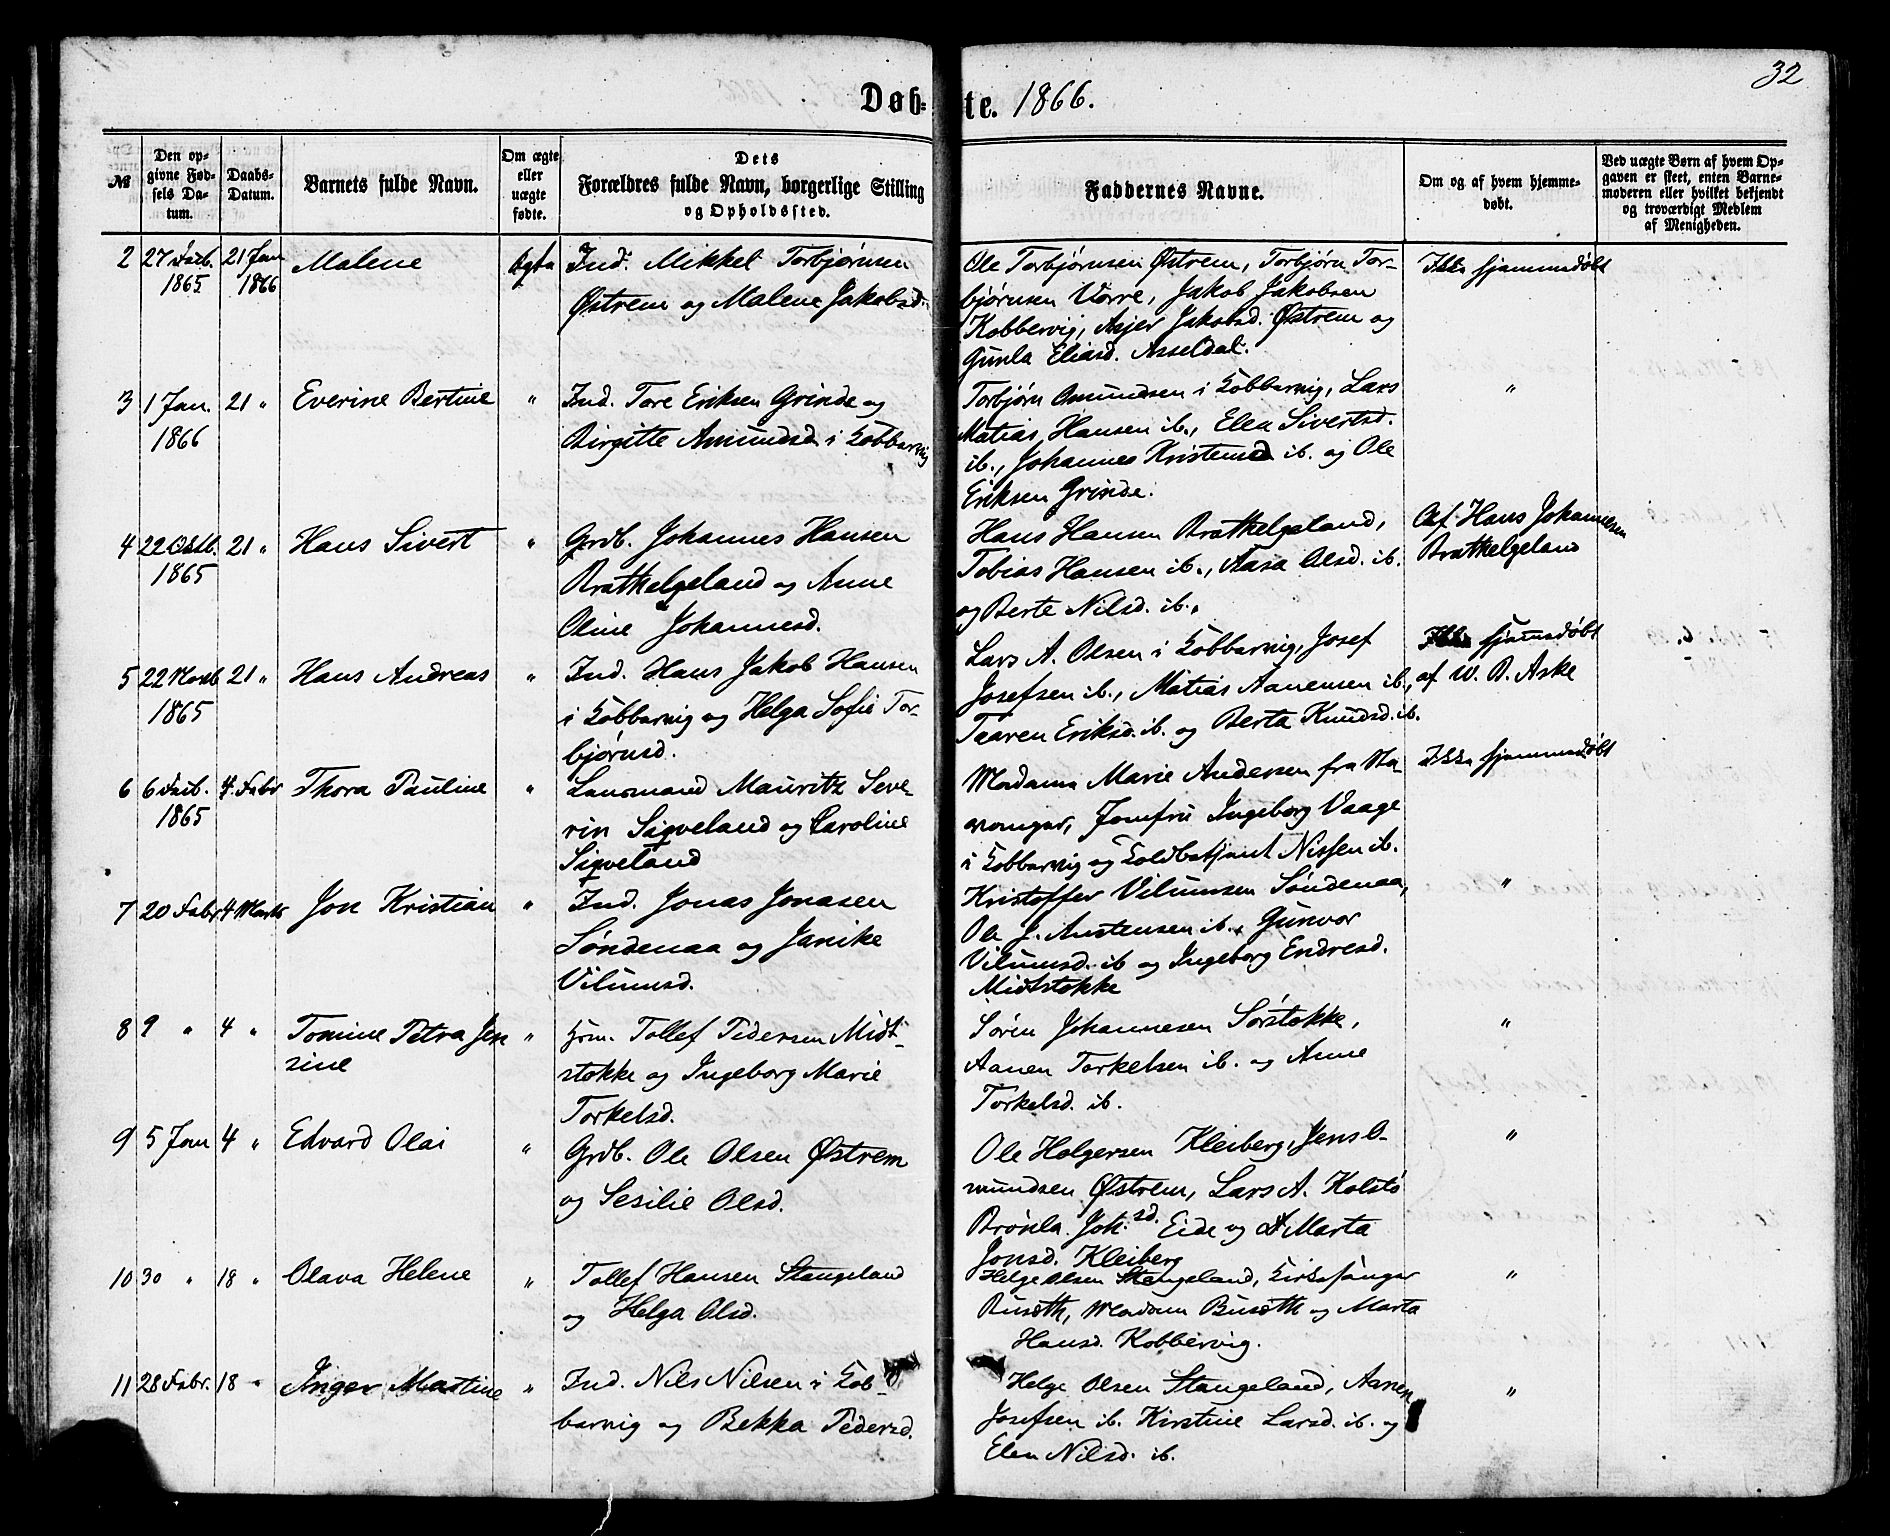 32
Døbte. 1866.
№
Den opgivne Fødsels Datum.
Daabs-Datum.
Barnets fulde Navn.
Om ægte eller uægte fødte.
Dets Forældres fulde Navn, borgerlige Stilling og Opholdssted.
Faddernes Navne.
Om og af hvem hjemmedøbt.
Ved uægte Børn af hvem Opgaven er skeet, enten Barnemoderen eller hvilket bekjendt og troværdigt Medlem af Menigheden.
2 1865 21 Jan 1866 Malene Ægte
Ind. Mikkel Torbjørnsen
Østrem og Malene Jakobsd.
Ole Torbjørnsen Østrem, Torbjørn Tor-
bjørnsen Vorre, Jakob Jakobsen
Kobbervig, Asjer Jakobsd. Østrem og
Gunla Eliasd. Asseldal.
Ikke hjemmedøbt
3 1 Jan. 1866 21 " Everine Bertine "
Ind. Tore Eriksen Grinde og
Birgitte Amundsd i Kobbervig
Torbjørn Omundsen i Kobbervig, Lars
Matias Hansen ib., Elen Sivertsd.
ib., Johannes Kristensd ib. og Ole
Eriksen Grinde.
"
4 22 Oktb. 1865 21 " Hans Sivert "
Grdb. Johannes Hansen
Brathelgeland og Anne
Oline Johannesd.
Hans Hansen Brathelgeland,
Tobias Hansen ib., Aasa Olsd. ib.
og Berte Nilsd. ib.
Af Hans Johannesen
Brathelgeland
5 22 Novb 1865 21 " Hans Andreas "
Ind. Hans Jakob Hansen
i Kobbervig og Helga Sofie Tor-
bjørnsd.
Lars A. Olsen i Kobbervig, Josef
Josefsen ib., Matias Aanensen ib.,
Taaren Eriksd. ib. og Berta Knudsd. ib.
hjemmedøbt
af W. B. Aske
6 1865 4 Febr Thora Pauline "
Lensmand Mauritz Seve-
rin Sigveland og Caroline
Sigveland
Madame Marie Andersen fra Sta-
vanger, Jomfru Ingeborg Vaage
i Kobbervig og Toldbetjent Nissen ib.
Ikke hjemmedøbt
7 20 Febr 4 Marts Jon Kristian "
Ind. Jonas Jonasen
Søndenaa og Janike
Vilumsd.
Kristoffer Vilumsen Søndenaa,
Ole J. Austensen ib., Gunvor
Vilumsd. ib og Ingeborg Endresd.
Midtstokke
"
8 9 " 4 " Tomine Petra Jen
sine "
Hsm. Tollef Pedersen Midt-
stokke og Ingeborg Marie
Torkelsd.
Søren Johannesen Sørstokke,
Aanen Torkelsen ib. og Anne
Torkelsd. ib.
"
9 5 Jan 4 " Edvard Olai "
Grdb. Ole Olsen Østrem
og Sesilie Olsd.
Ole Holgersen Kleiberg, Jens O-
mundsen Østrem, Lars A. Kolstø
Brønla Joh.sd. Eide og Marta
Jonsd. Kleiberg
"
10 30 " 18 " Olava Helene "
Tollef Hansen Stangeland
og Helga Olsd.
Helge Olsen Stangeland, Kirkesanger
Buseth, Madam Buseth og Marta
Hansd. Kobbervig.
"
11 28 Febr. 18 " Inger Martine "
Ind. Nils Nilsen i Kob-
bervig og Bekka Pedersd.
Helge Olsen Stangeland, Aanen
Josefsen ib. Kirstine Larsd. ib. og
Elen Nilsd. ib.
"